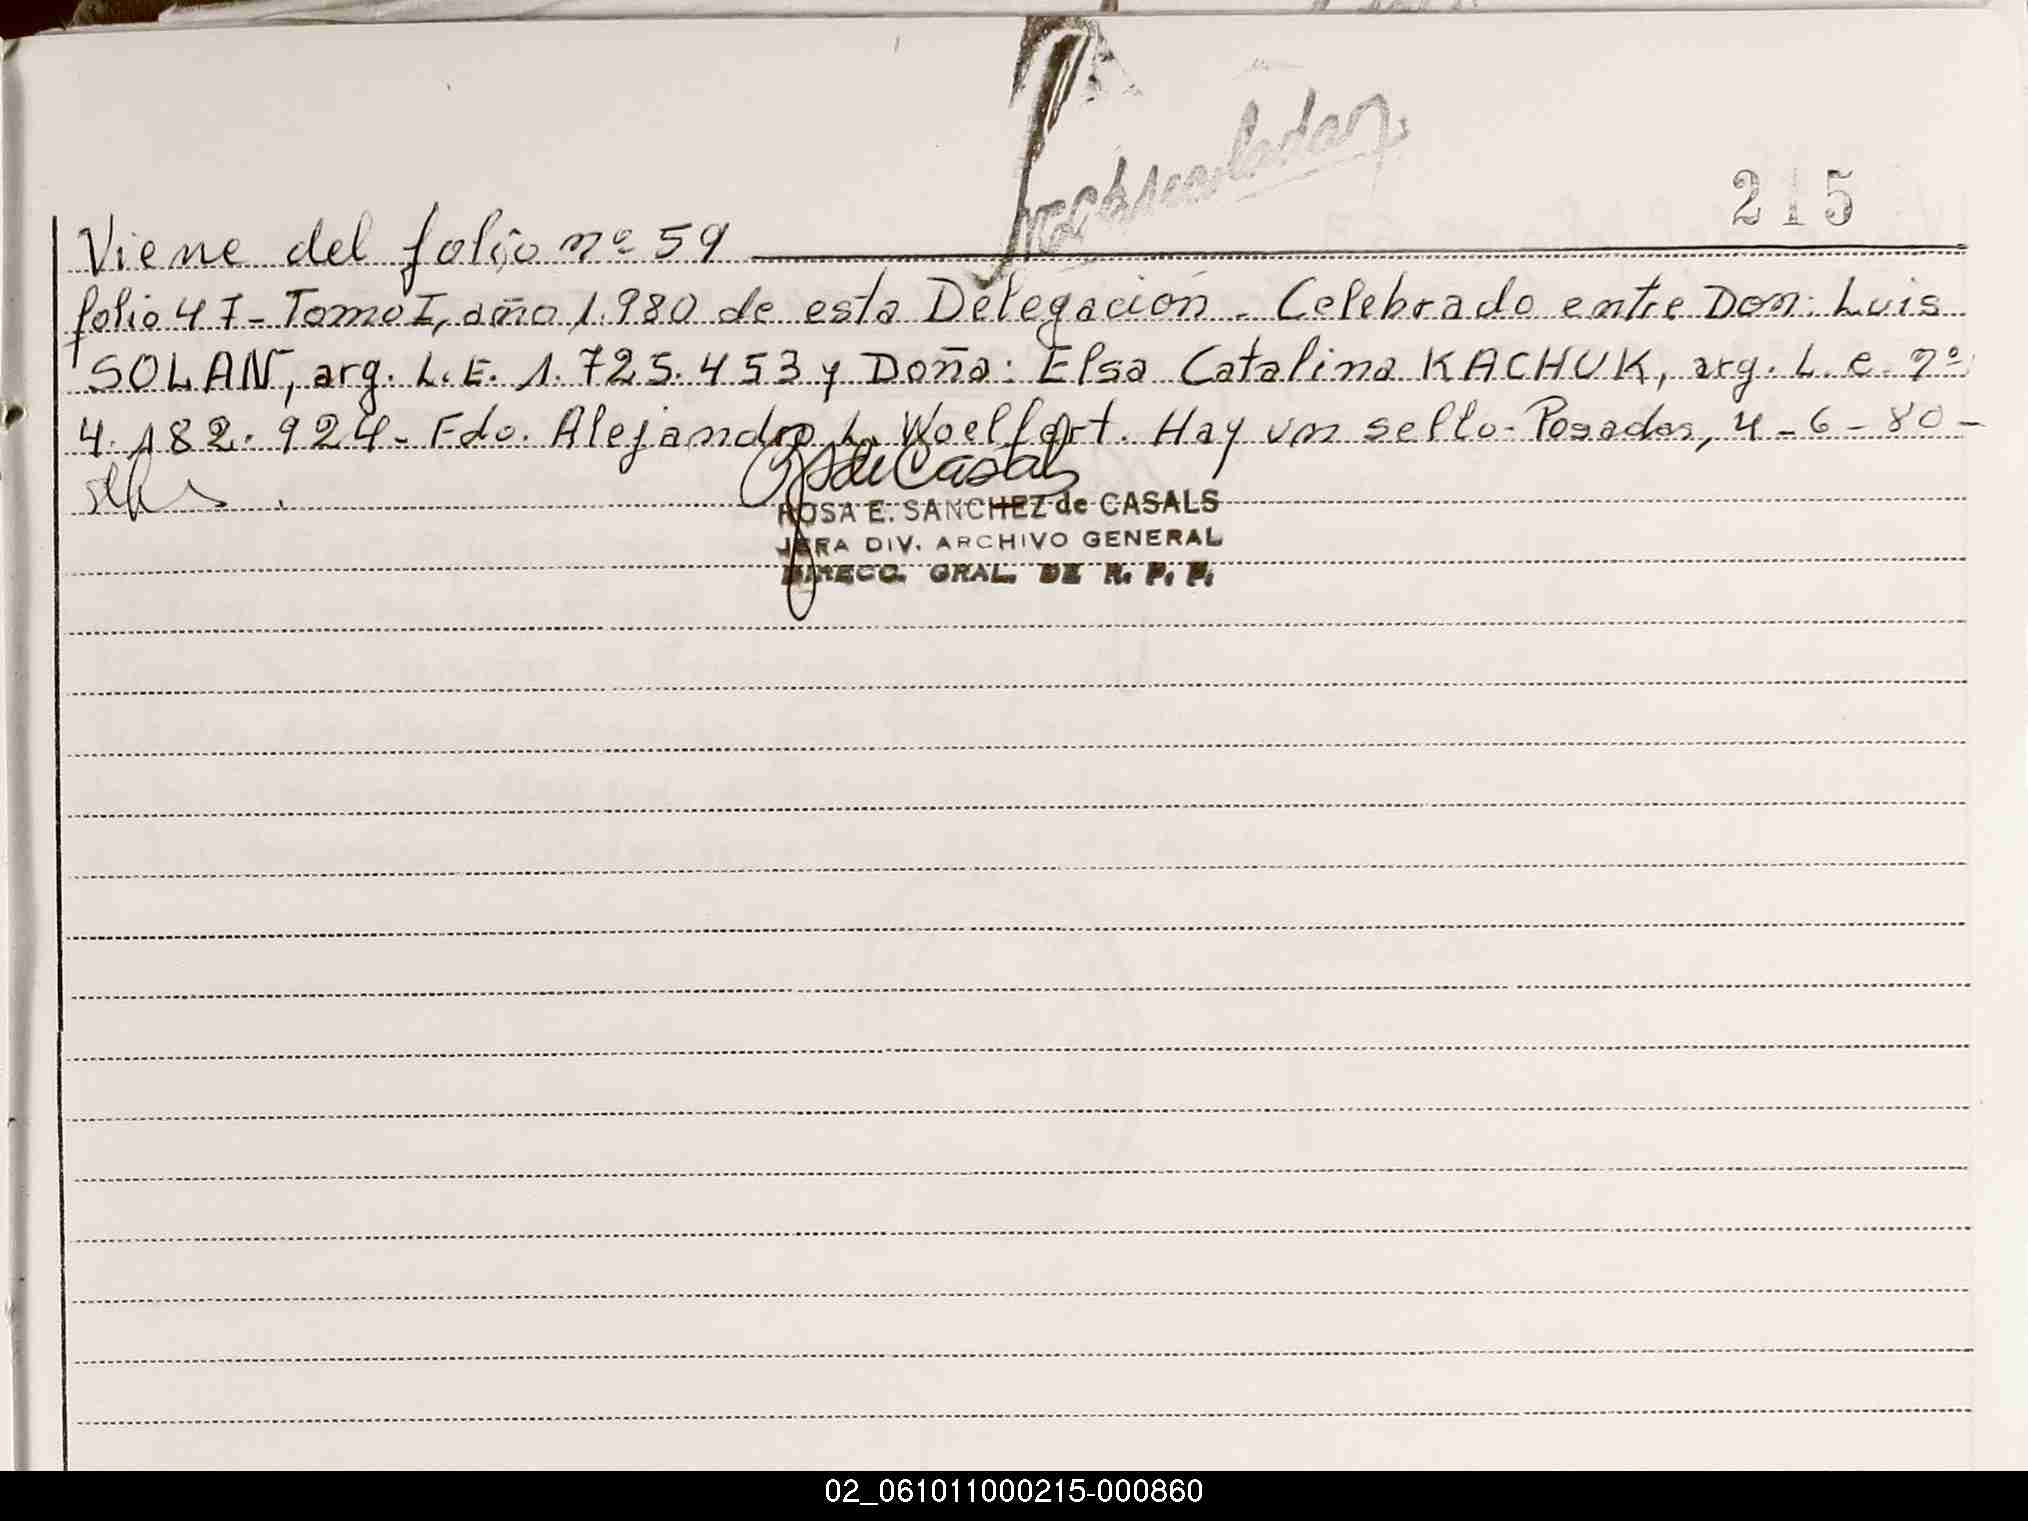 215
Viene del folio nº 59
folio 47- Tomo I, año 1.980 de esta Delegación. Celebrado entre Don: Luis
SOLAN, arg. L.E. 1.725.453 y Doña: Elsa Catalina KACHUK, arg. L.e. nº
4.182.924- Fdo. Alejandro L. Woelfort. Hay un sello- Posadas, 4-6-80-
de Casals
ROSA E. SANCHEZ de CASALS
JEFA DIV. ARCHIVO GENERAL
DIRECC. GRAL. DE R. P. P.
02_061011000215-000860